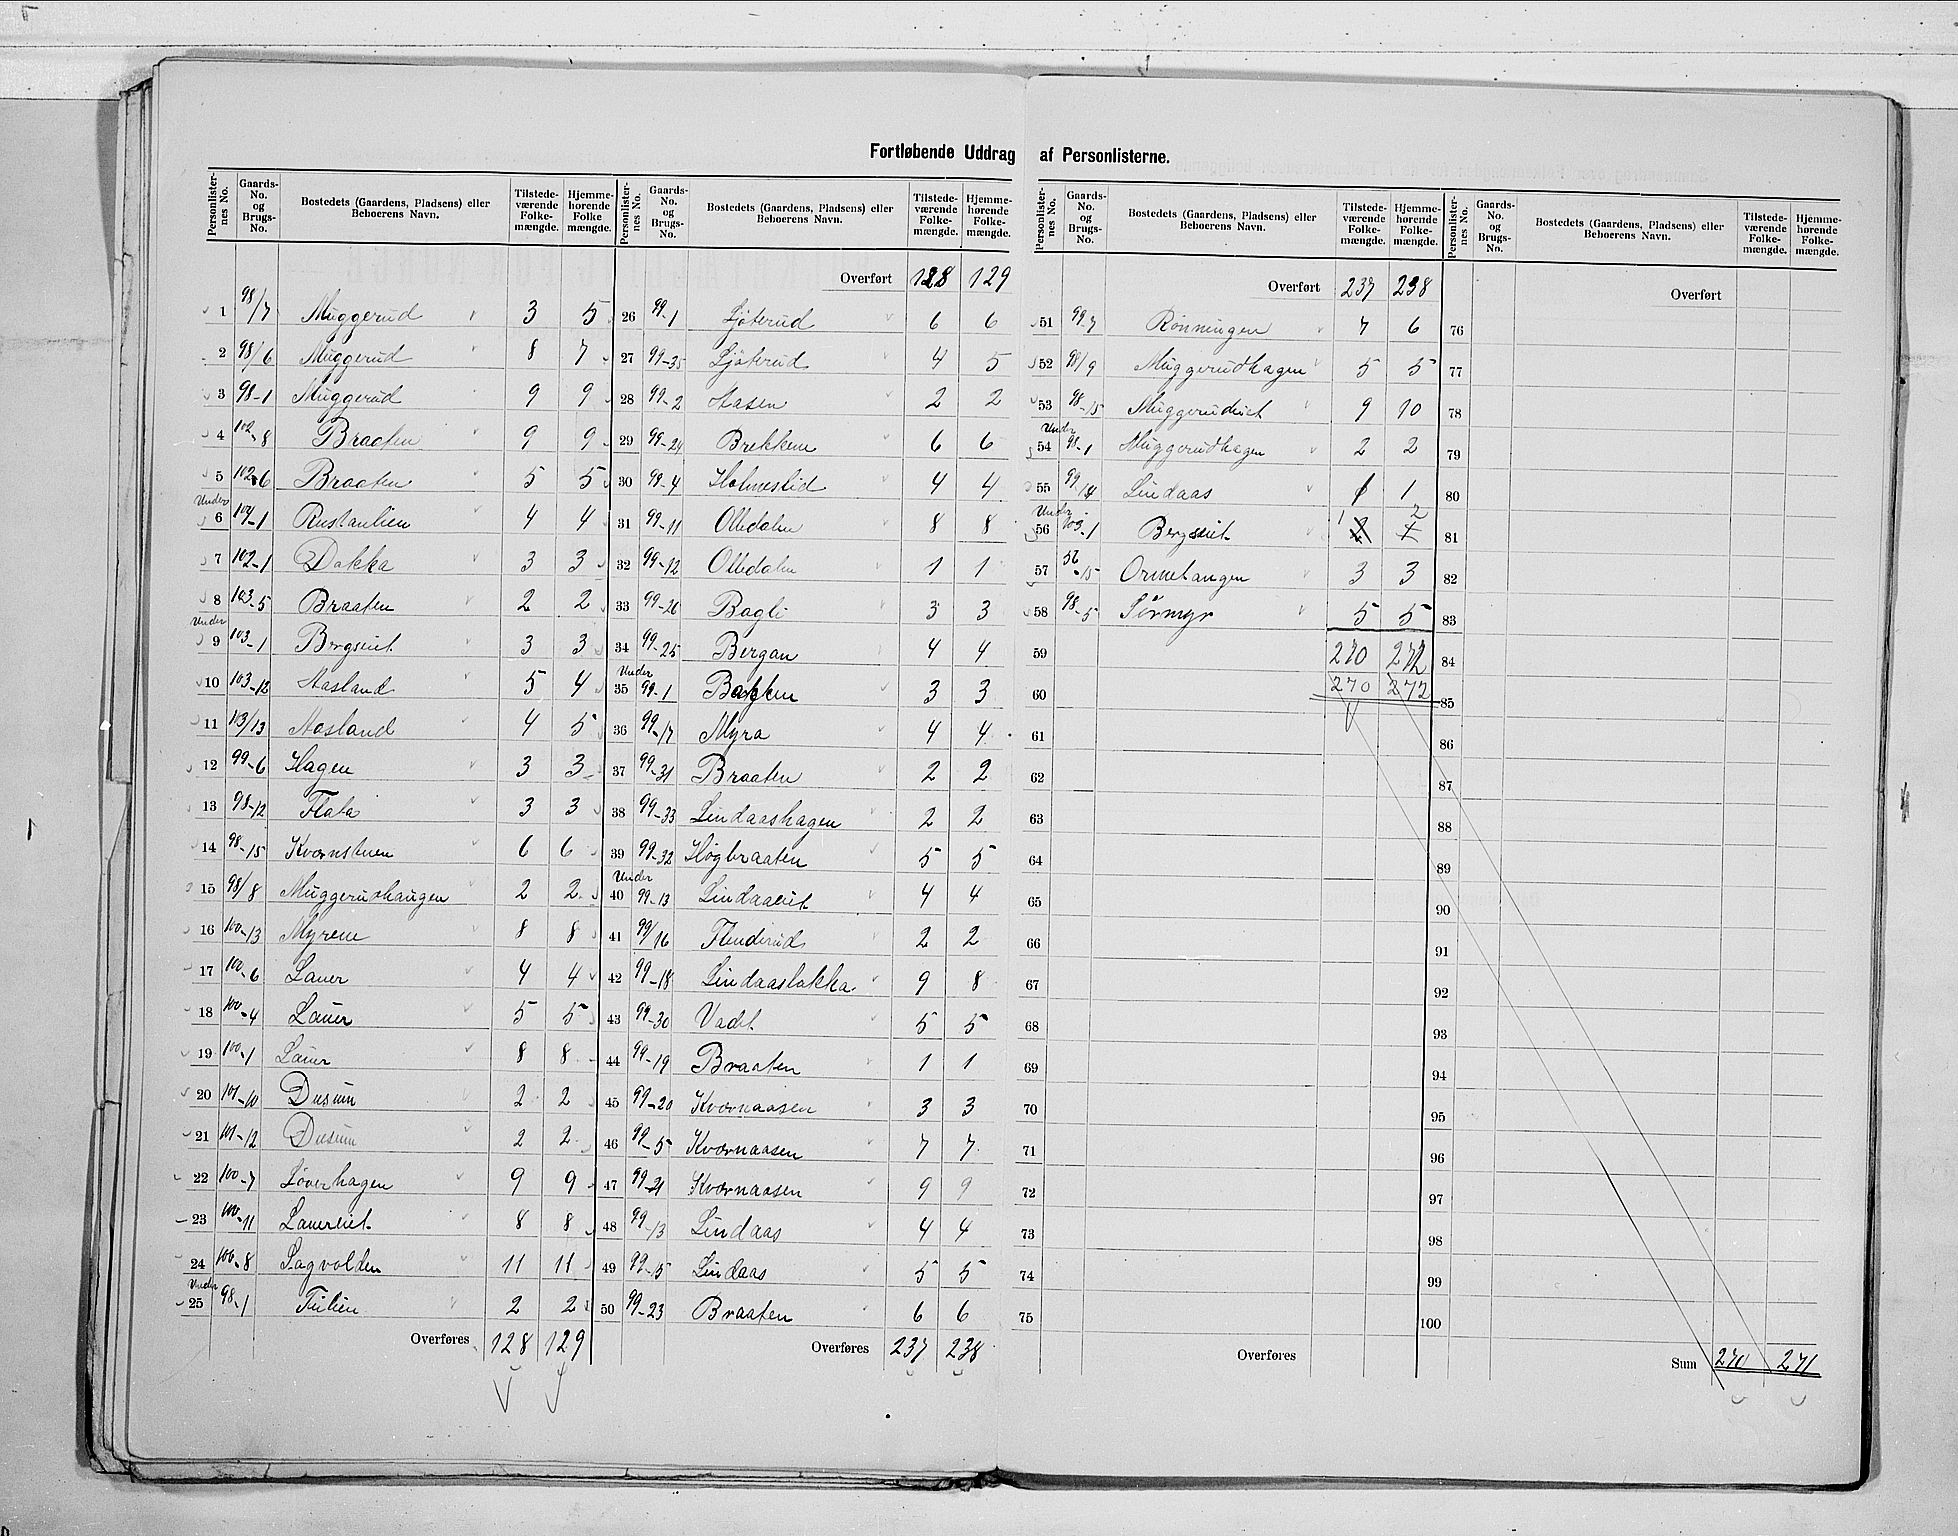 Fortløbende Uddrag af Personlisterne.
Personlisternes No. Gaards-No. og Brugs-No. Bostedets (Gaardens, Pladsens) eller Beboerens Navn. Tilstedeværende Folkemængde. Hjemmehørende Folkemængde.
1 98/7 Muggerud 3 5
2 98/6 Muggerud 8 7
3 98-1 Muggerud 9 9
4 102-8 Braaten 9 9
5 102-6 Braaten 5 5
Under
6 104-1 Rustanlien 4 4
7 102-1 Dokka 3 3
8 103-5 Braaten 2 2
Under
9 103-1 Bergseiet 3 3
10 103-12 Aasland 5 4
11 103/13 Aasland 4 5
12 99-6 Hagen 3 3
13 98-12 Flata 3 3
14 98-15 Kvernstuen 6 6
15 98/8 Muggerudhaugen 2 2
16 100-13 Myrene 8 8
17 100-6 Lauer 4 4
18 100-4 Lauer 5 5
19 100-1 Lauer 8 8
20 101-10 Dusum 2 2
21 101-12 Dusum 2 2
22 100-7 Løverhagen 9 9
23 100-11 Lauereiet 8 8
24 100-8 Sagvolden 11 11
Under
25 98-1 2 2
Overføres 128 129
Personlisternes No. Gaards-No. og Brugs-No. Bostedets (Gaardens, Pladsens) eller Beboerens Navn. Tilstedeværende Folkemængde. Hjemmehørende Folkemængde.
Overført 128 129
26 99-1 Ljøterud 6 6
27 99-35 Ljøterud 4 5
28 99-2 Aasen 2 2
29 99-24 Brekkene 6 6
30 99-4 Holmestid 4 4
31 99-11 Olledalen 8 8
32 99-12 Olledalen 1 1
33 99-26 Bagli 3 3
34 99-25 Bergan 4 4
Under
35 99-1 Bakken 3 3
36 99-17 Myra 4 4
37 99-31 Braaten 2 2
38 99-33 Lindaashagen 2 2
39 99-32 Høgbraaten 5 5
Under
40 99-13 Lindaaseiet 4 4
41 99/16 Flenderud 2 2
42 99-18 Lindaasløkka 9 8
43 99-30 Vadet 5 5
44 99-19 Braaten 1 1
45 99-20 Kvernaasen 3 3
46 99-5 Kvernaasen 7 7
47 99-21 Kvernaasen 9 9
48 99-13 Lindaas 4 4
49 99-15 Lindaas 5 5
50 99-23 Braaten 6 6
Overføres 237 238
Personlisternes No. Gaards-No. og Brugs-No. Bostedets (Gaardens, Pladsens) eller Beboerens Navn. Tilstedeværende Folkemængde. Hjemmehørende Folkemængde.
Overført 237 238
51 99-7 Rønningen 7 6
52 98/9 Muggerudhagen 5 5
53 98-15 Muggerudeiet 9 10
Under
54 98-1 Muggerudhagen 2 2
55 99-14 Lindaas 1 1
Under
56 103-1 Bergseiet 1 2
57 56-15 Ormetangen 3 3
58 98-5 Sørmyr 5 5
59 270 272
60 270 272
61
62
63
64
65
66
67
68
69
70
71
72
73
74
75
Overføres
Personlisternes No. Gaards-No. og Brugs-No. Bostedets (Gaardens, Pladsens) eller Beboerens Navn. Tilstedeværende Folkemængde. Hjemmehørende Folkemængde.
Overført
76
77
78
79
80
81
82
83
84
85
86
87
88
89
90
91
92
93
94
95
96
97
98
99
100
Sum 270 271